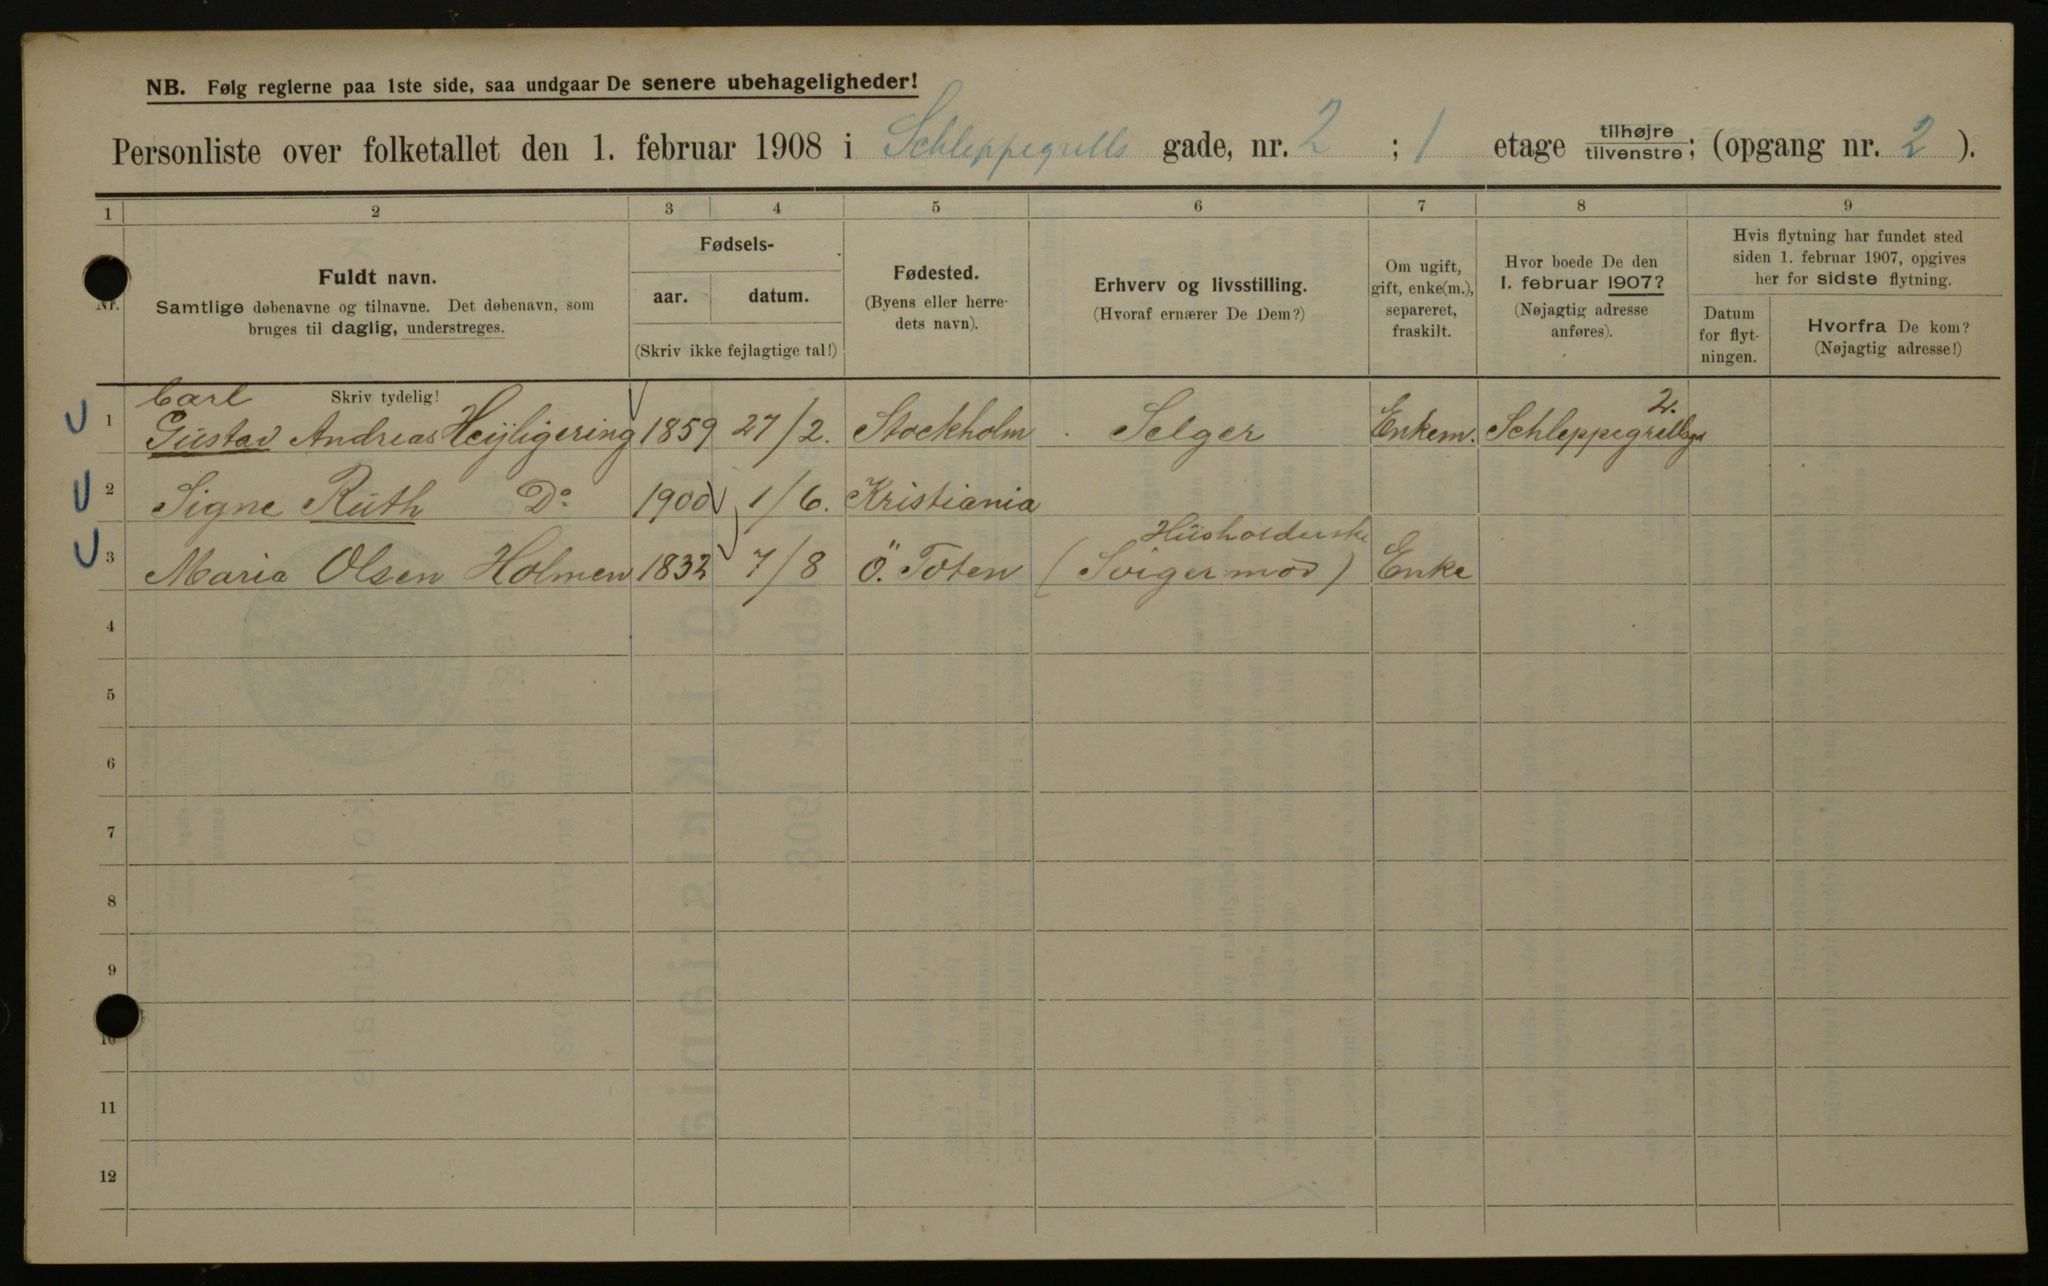 NB. Følg reglerne paa 1ste side, saa undgaar De senere ubehageligheder!
Personliste over folketallet den 1. februar 1908 i Schleppegrells gade, nr. 2 ; 1 etage tilhøjre tilvenstre; (opgang nr. 2 ).
1 2 3 4 5 6 7 8 9
Nr.
Fuldt navn.
Samtlige døbenavne og tilnavne. Det døbenavn, som
bruges til daglig, understreges.
Fødsels-
aar. datum.
(Skriv ikke fejlagtige tal!)
Fødested.
(Byens eller herre-
dets navn).
Erhverv og livsstilling.
(Hvoraf ernærer De Dem?)
Om ugift,
gift, enke(m.),
separeret,
fraskilt.
Hvor boede De den
1. februar 1907?
(Nøjagtig adresse
anføres).
Hvis flytning har fundet sted
siden 1. februar 1907, opgives
her for sidste flytning.
Datum
for flyt-
ningen.
Hvorfra De kom?
(Nøjagtig adresse!)
Skriv tydelig!
Carl
1 Gustav Andreas Heijligering 1859 27/2. Stockholm Selger Enkem. Schleppegrellsgd 2.
2 Signe Ruth Do 1900 1/6. Kristiania
Husholderske
3 Maria Olsen Holmen 1832 7/8 Ö. Toten (Svigermod) Enke
4
5
6
7
8
9
10
11
12